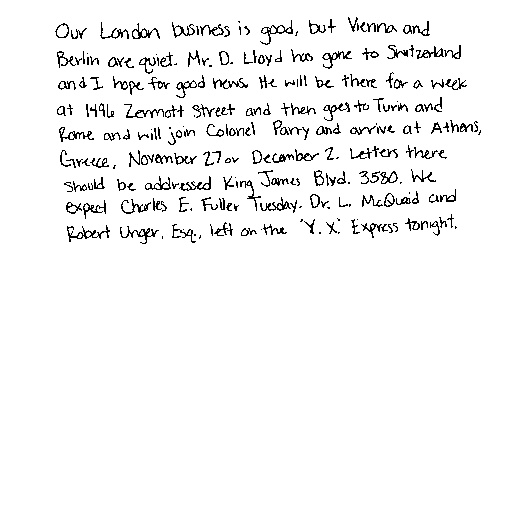 Our London business is good, but Vienna and
Berlin are quiet. Mr. D. Lloyd has gone to Switzerland
and I hope for good news. He will be there for a week
at 1496 Zermott Street and then goes to Turin and
Rome and will join Colonel Parry and arrive at Athens,
Greece, November 27 or December 2. Letters there
should be addressed King James Blvd. 3580. We
expect Charles E. Fuller Tuesday. Dr. L. McQuaid and
Robert Unger, Esq., left on the "Y.X." Express tonight.